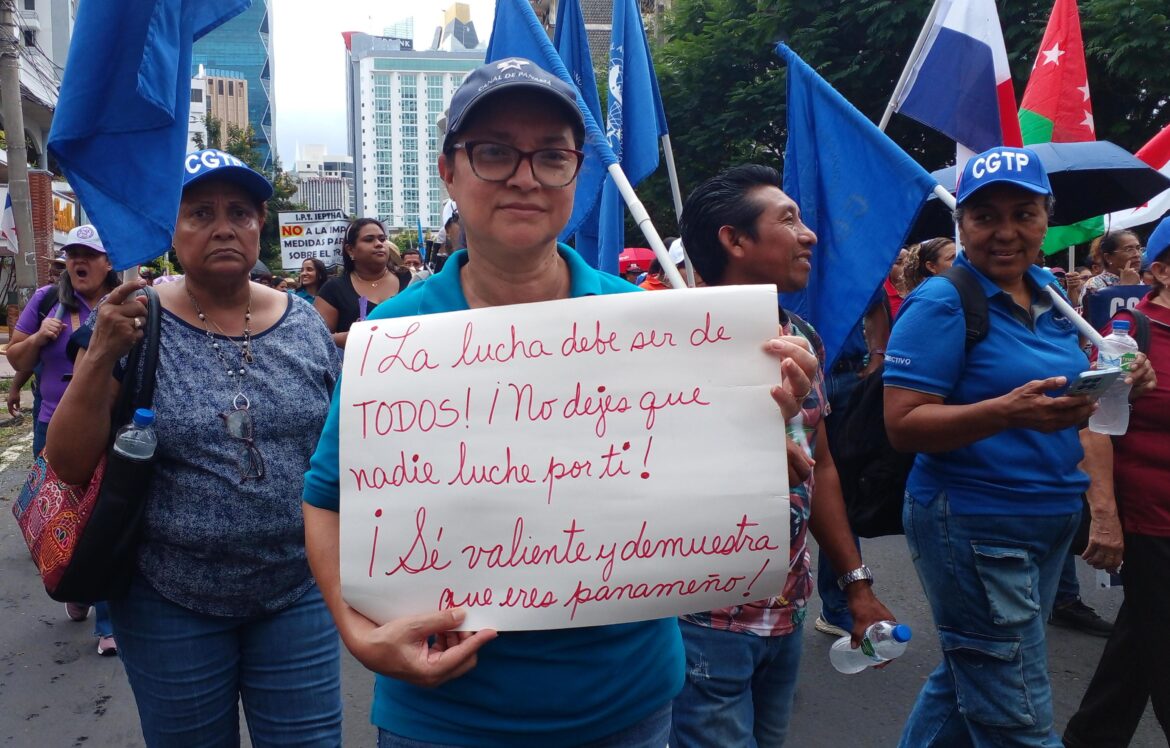 CANAL DE PANAMÁ
CGTP
CGTP
I.P.T. JEPTHA
NO A LA IMP
MEDIDAS PAR
SOBRE EL TRA
¡La lucha debe ser de
TODOS! ¡No dejes que
nadie luche por ti!
¡Sé valiente y demuestra
que eres panameño!